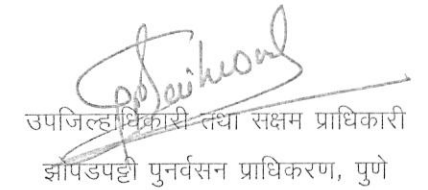 उपजिल्हाधिकारी तथा सक्षम प्राधिकारी
झोपडपट्टी पुनर्वसन प्राधिकरण, पुणे